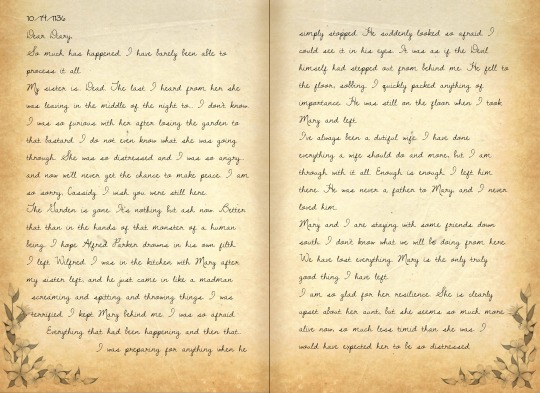 10/14/1136
Dear Diary,
So much has happened. I have barely been able to
process it all.
My sister is.. Dead. The last I heard from her she
was leaving in the middle of the night to.. I don't know.
I was so furious with her after losing the garden to
that bastard. I do not even know what she was going
through. She was so distressed and I was so angry..
and now we'll never get the chance to make peace. I am
so sorry, Cassidy. I wish you were still here.
The Garden is gone. It's nothing but ash now. Better
that than in the hands of that monster of a human
being. I hope Alfred Parker drowns in his own filth.
I left Wilfred. I was in the kitchen with Mary after
my sister left, and he just came in like a madman
screaming and spitting and throwing things. I was
terrified. I kept Mary behind me. I was so afraid.
Everything that had been happening, and then that..
I was preparing for anything when he
simply stopped. He suddenly looked so afraid. I
could see it in his eyes. It was as if the Devil
himself had stepped out from behind me. He fell to
the floor, sobbing. I quickly packed anything of
importance. He was still on the floor when I took
Mary and left.
I've always been a dutiful wife. I have done
everything a wife should do and more, but I am
through with it all. Enough is enough. I left him
there. He was never a father to Mary, and I never
loved him.
Mary and I are staying with some friends down
south. I don't know what we will be doing from here.
We have lost everything. Mary is the only truly
good thing I have left.
I am so glad for her resilience. She is clearly
upset about her aunt, but she seems so much more
alive now so much less timid than she was. I
would have expected her to be so distressed.